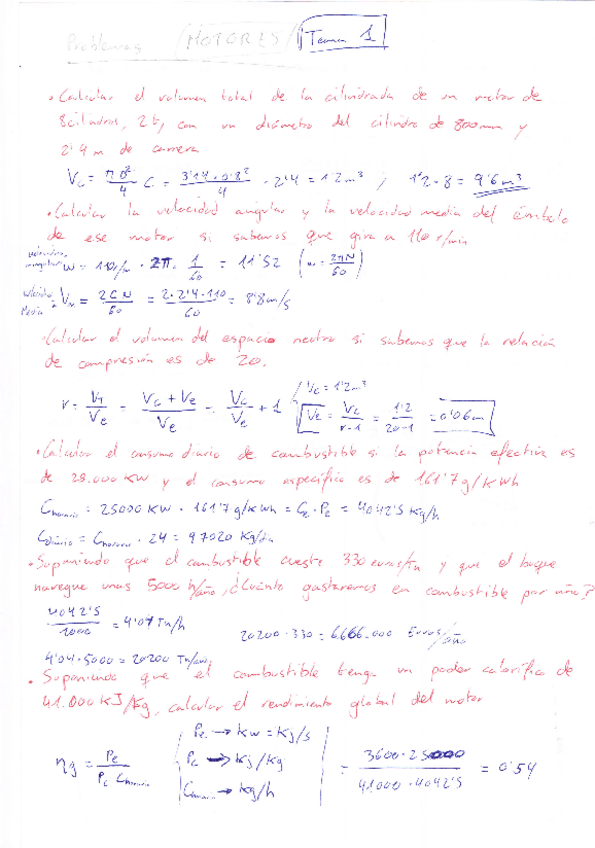 Problemas MOTORES Tema 1
• Calcular el volumen total de la cilindrada de un motor de
8cilindros, 2t, con un diámetro del cilindro de 800mm y
2'4 m de carrera
Vc = πD²/4 C = 3'14·0'8²/4 · 2'4 = 1'2 m³ ; 1'2·8 = 9'6 m³
• Calcular la velocidad angular y la velocidad media del émbolo
de ese motor si sabemos que gira a 110 r/min
velocidad angular w = 110 r/m · 2π · 1/60 = 11'52 (w = 2πN/60)
velocidad Media Vm = 2CN/60 = 2·2'4·110/60 = 8'8 m/s
• Calcular el volumen del espacio neutro si sabemos que la relación
de compresión es de 20.
r = VT/Ve = Vc + Ve/Ve = Vc/Ve + 1 Vc = 1'2 m³
Ve = Vc/r-1 = 1'2/20-1 = 0'06 m
• Calcular el consumo diario de combustible si la potencia efectiva es
de 25.000 KW y el consumo específico es de 161'7 g/KWh
Chorario = 25000 KW · 161'7 g/KWh = Ce · Pe = 4042'5 Kg/h
Cdiario = Chorario · 24 = 97020 Kg/día
• Suponiendo que el combustible cueste 330 euros/Tn y que el buque
navegue unas 5000 h/año, ¿Cuánto gastaremos en combustible por año?
4042'5/1000 = 4'04 Tn/h
20200·330 = 6666.000 Euros/año
4'04·5000 = 20200 Tn/año
• Suponiendo que el combustible tenga un poder calorífico de
41.000 KJ/Kg, calcular el rendimiento global del motor
Pe → KW = Kj/s
ηg = Pe/Pc Chorario Pc → Kj/Kg = 3600·25000/41000·4042'5 = 0'54
Chorario → Kg/h